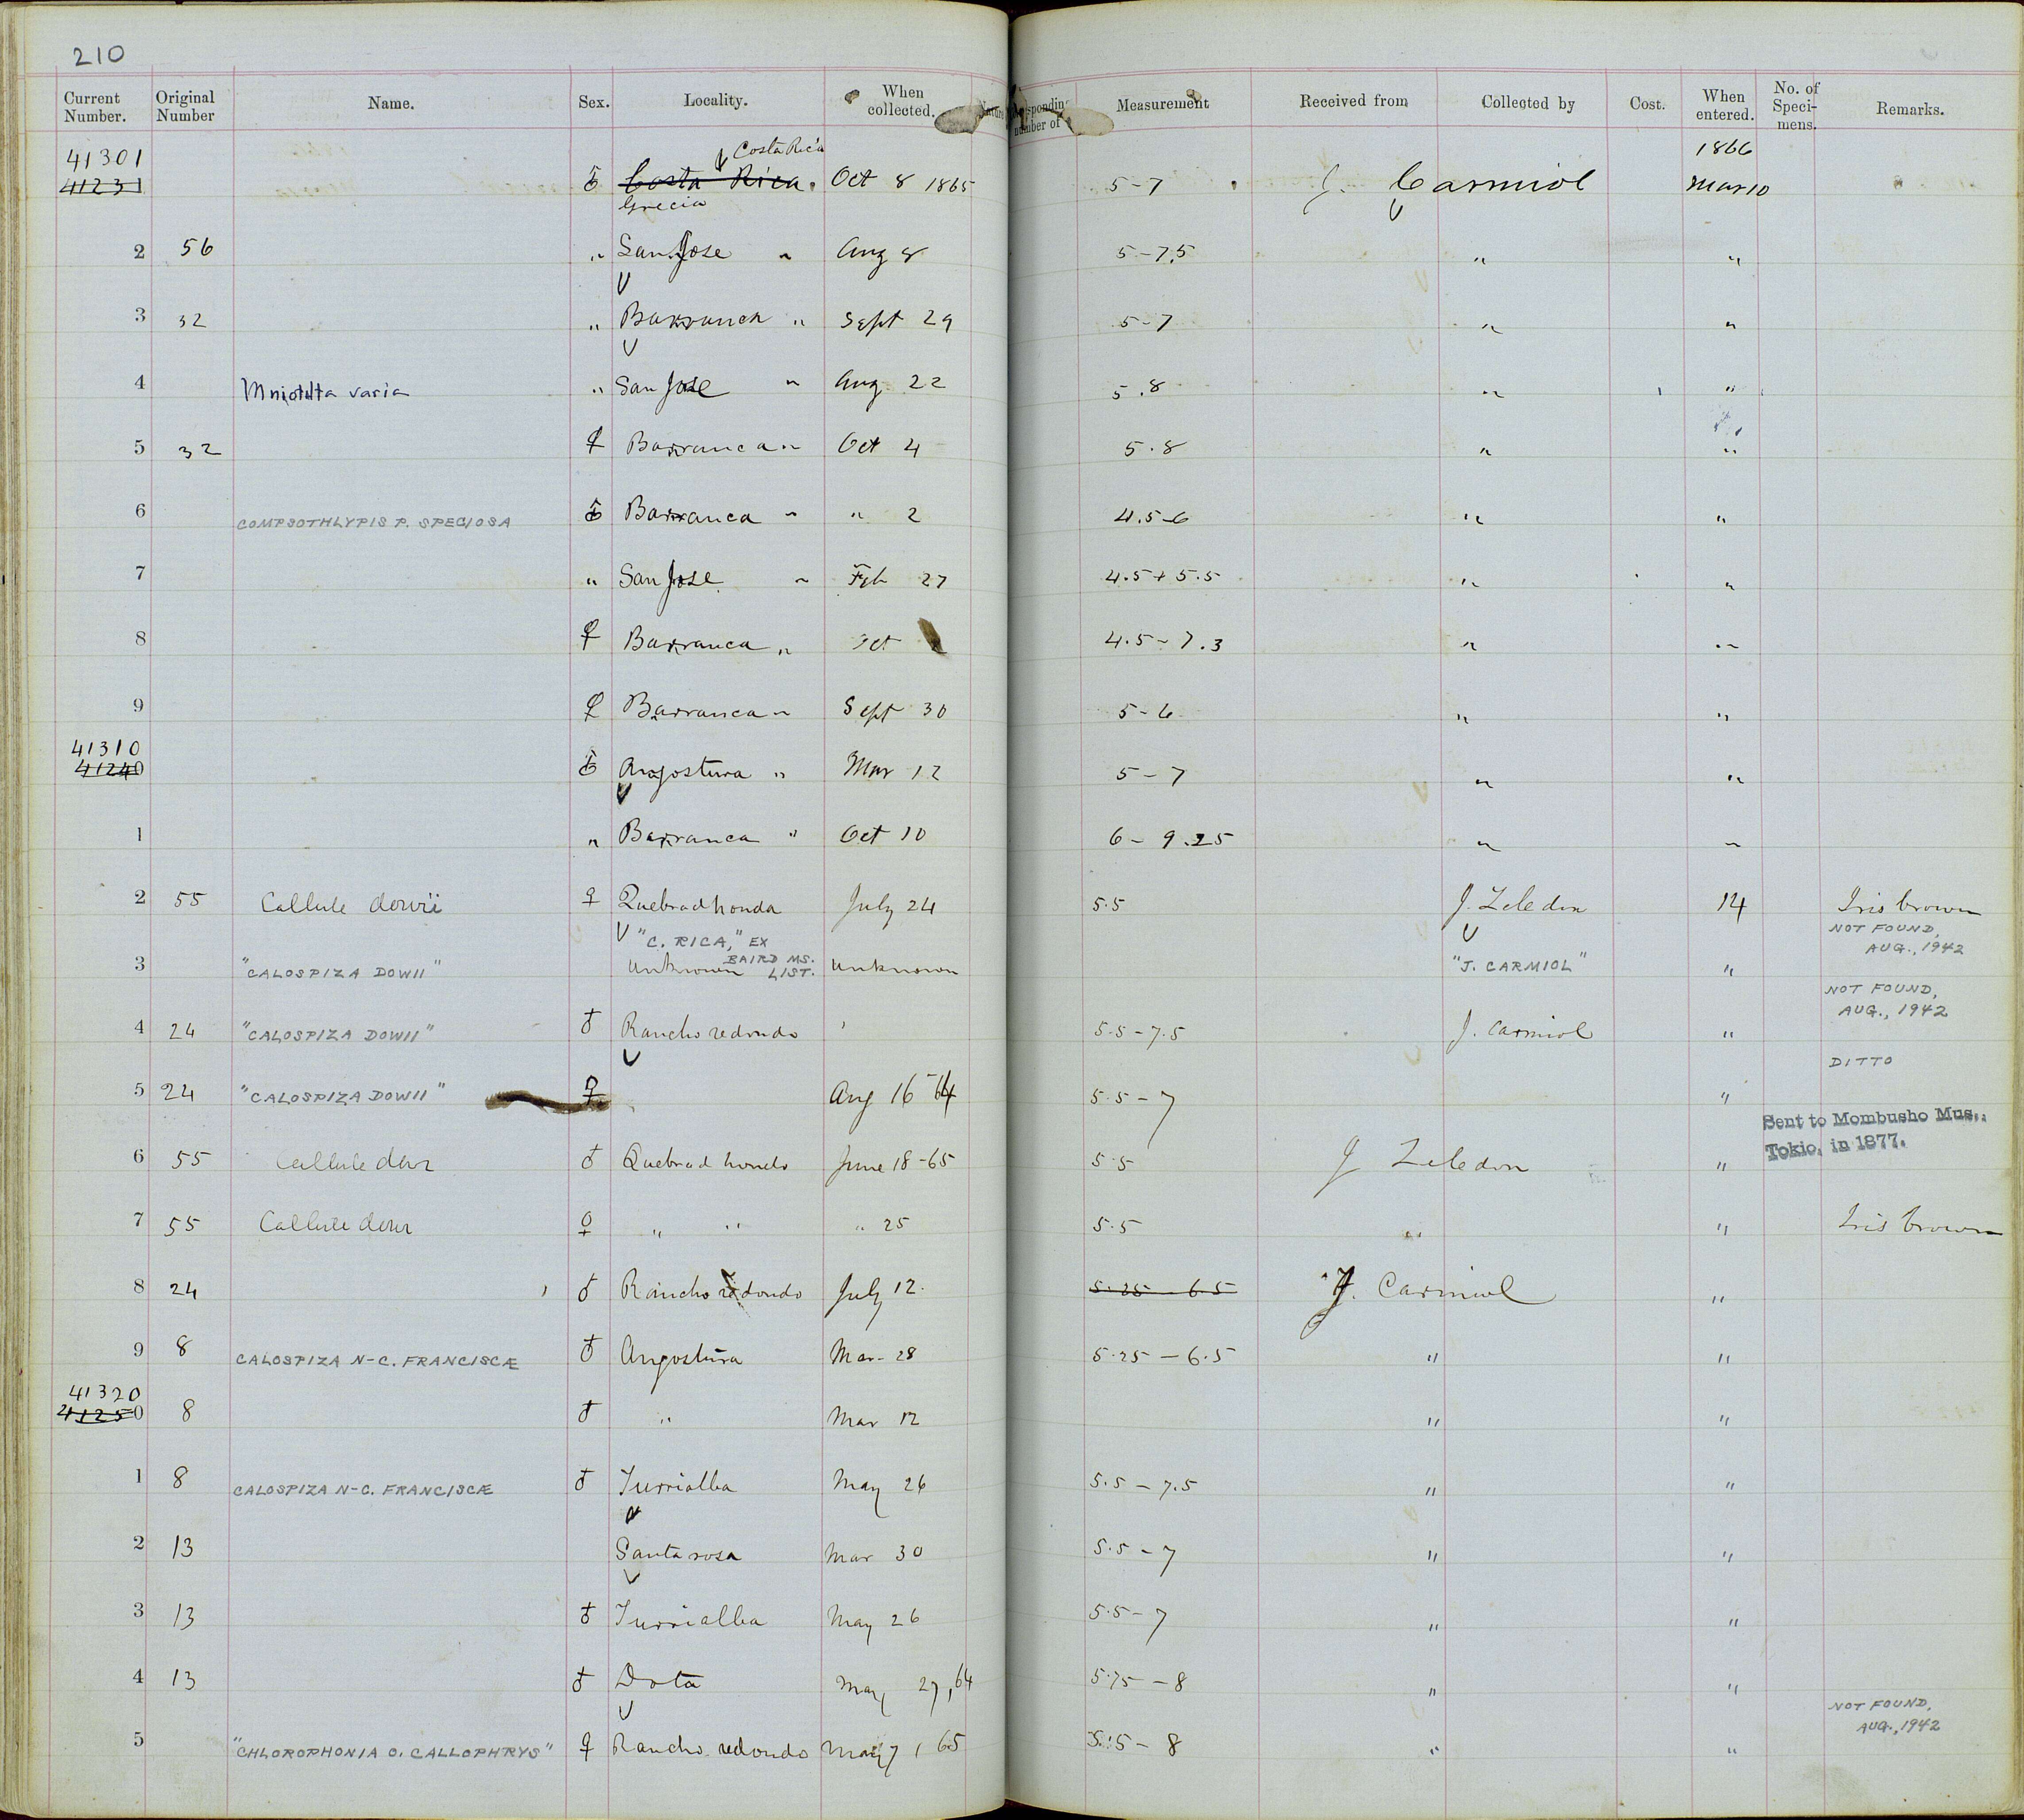 210
Current Number. Original Number Name. Sex. Locality. When collected. Nature Measurement Received from Collected by Cost. When entered. No. of Speci- mens. Remarks.
41301 Costa Rica 1866
41231 ♂ Costa Rica. Oct 8 1865 5-7 J. Carmiol Mar 10
Grecia
2 56 " San Jose " Aug 8 5-7.5 " "
3 32 " Barranca " Sept 29 5-7 " "
4 Mniotilta varia " San Jose " Aug 22 5.8 " "
5 32 ♀ Barranca " Oct 4 5.8 " "
6 COMPSOTHLYPIS P. SPECIOSA ♂ Barranca " " 2 4.5-6 " "
7 " San Jose " Feb 27 4.5+5.5 " "
8 ♀ Barranca " Oct 4.5-7.3 " "
9 ♀ Barranca " Sept 30 5-6 " "
41310
41240 ♂ Angostura " Mar 12 5-7 " "
1 " Barranca " Oct 10 6-9.25 " "
2 55 Calliste dowii ♀ Quebradhonda July 24 5.5 J. Zeledon 14 Iris brown
"C. RICA," EX BAIRD MS. LIST. NOT FOUND, AUG., 1942
3 "CALOSPIZA DOWII" unknown unknown "J. CARMIOL" "
NOT FOUND, AUG., 1942
4 24 "CALOSPIZA DOWII" ♂ Rancho redondo 5.5-7.5 J. Carmiol "
DITTO
5 24 "CALOSPIZA DOWII" ♀ Aug 16 -64 5.5-7 "
Sent to Mombusho Mus.,
Tokio, in 1877.
6 55 Calliste dow ♂ Quebrad hondo June 18-65 5.5 J Zeledon "
7 55 Calliste dow ♀ " " " 25 5.5 " " Iris brown
8 24 ♂ Rancho redondo July 12. 5.25-6.5 J. Carmiol "
9 8 CALOSPIZA N-C. FRANCISCÆ ♂ Angostura Mar-28 5.25-6.5 " "
41320
41250 8 ♂ " Mar 12 " "
1 8 CALOSPIZA N-C. FRANCISCÆ ♂ Turrialba May 26 5.5-7.5 " "
2 13 Santa rosa Mar 30 5.5-7 " "
3 13 ♂ Turrialba May 26 5.5-7 " "
4 13 ♂ Dota May 27, 64 5.75-8 " "
NOT FOUND, AUG., 1942
5 "CHLOROPHONIA O. CALLOPHRYS" ♀ Rancho redondo May 7, 65 - 8 " "